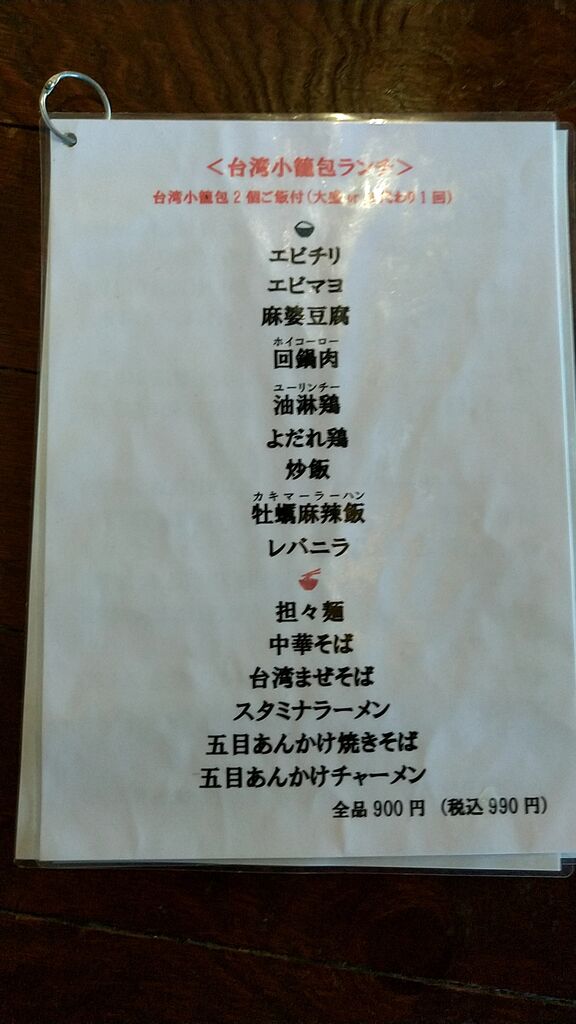 ＜台湾小籠包ランチ＞
台湾小籠包２個ご飯付(大盛 or おかわり１回)
エビチリ
エビマヨ
麻婆豆腐
ホイコーロー
回鍋肉
ユーリンチー
油淋鶏
よだれ鶏
炒飯
カキマーラーハン
牡蠣麻辣飯
レバニラ
担々麺
中華そば
台湾まぜそば
スタミナラーメン
五目あんかけ焼きそば
五目あんかけチャーメン
全品 900 円 (税込 990 円)